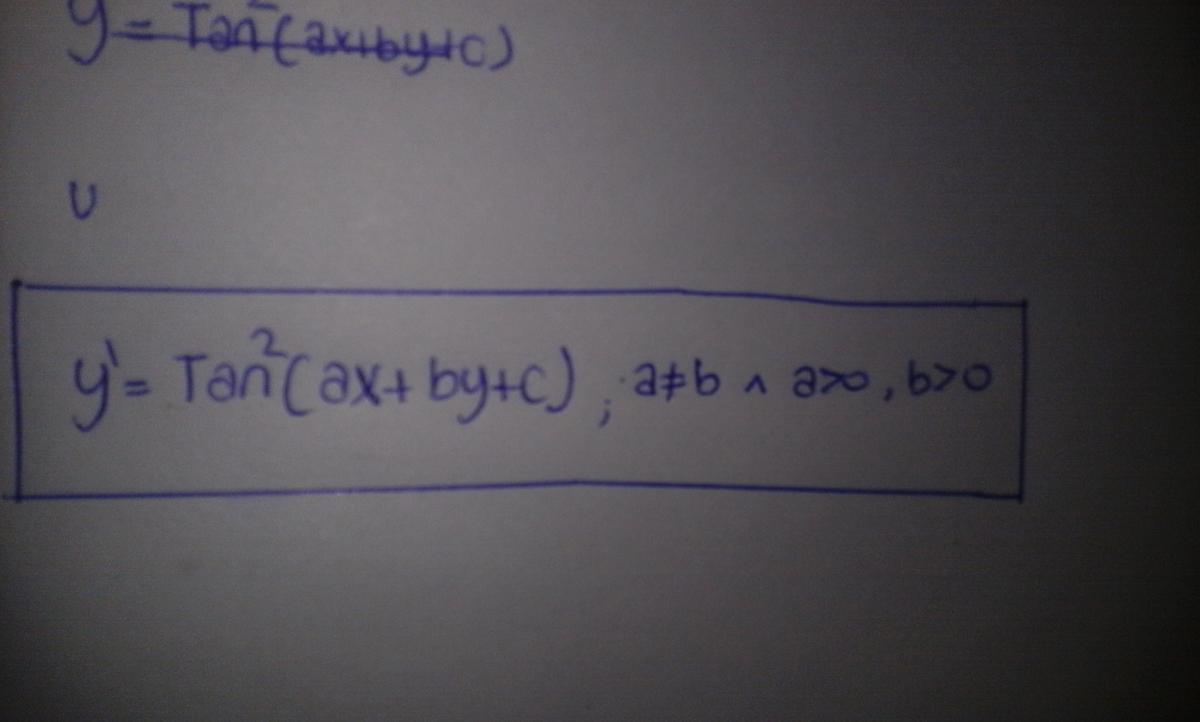 y = Tan²(ax+by+c)
U
y' = Tan²(ax+by+c) ; a≠b ∧ a>0, b>0